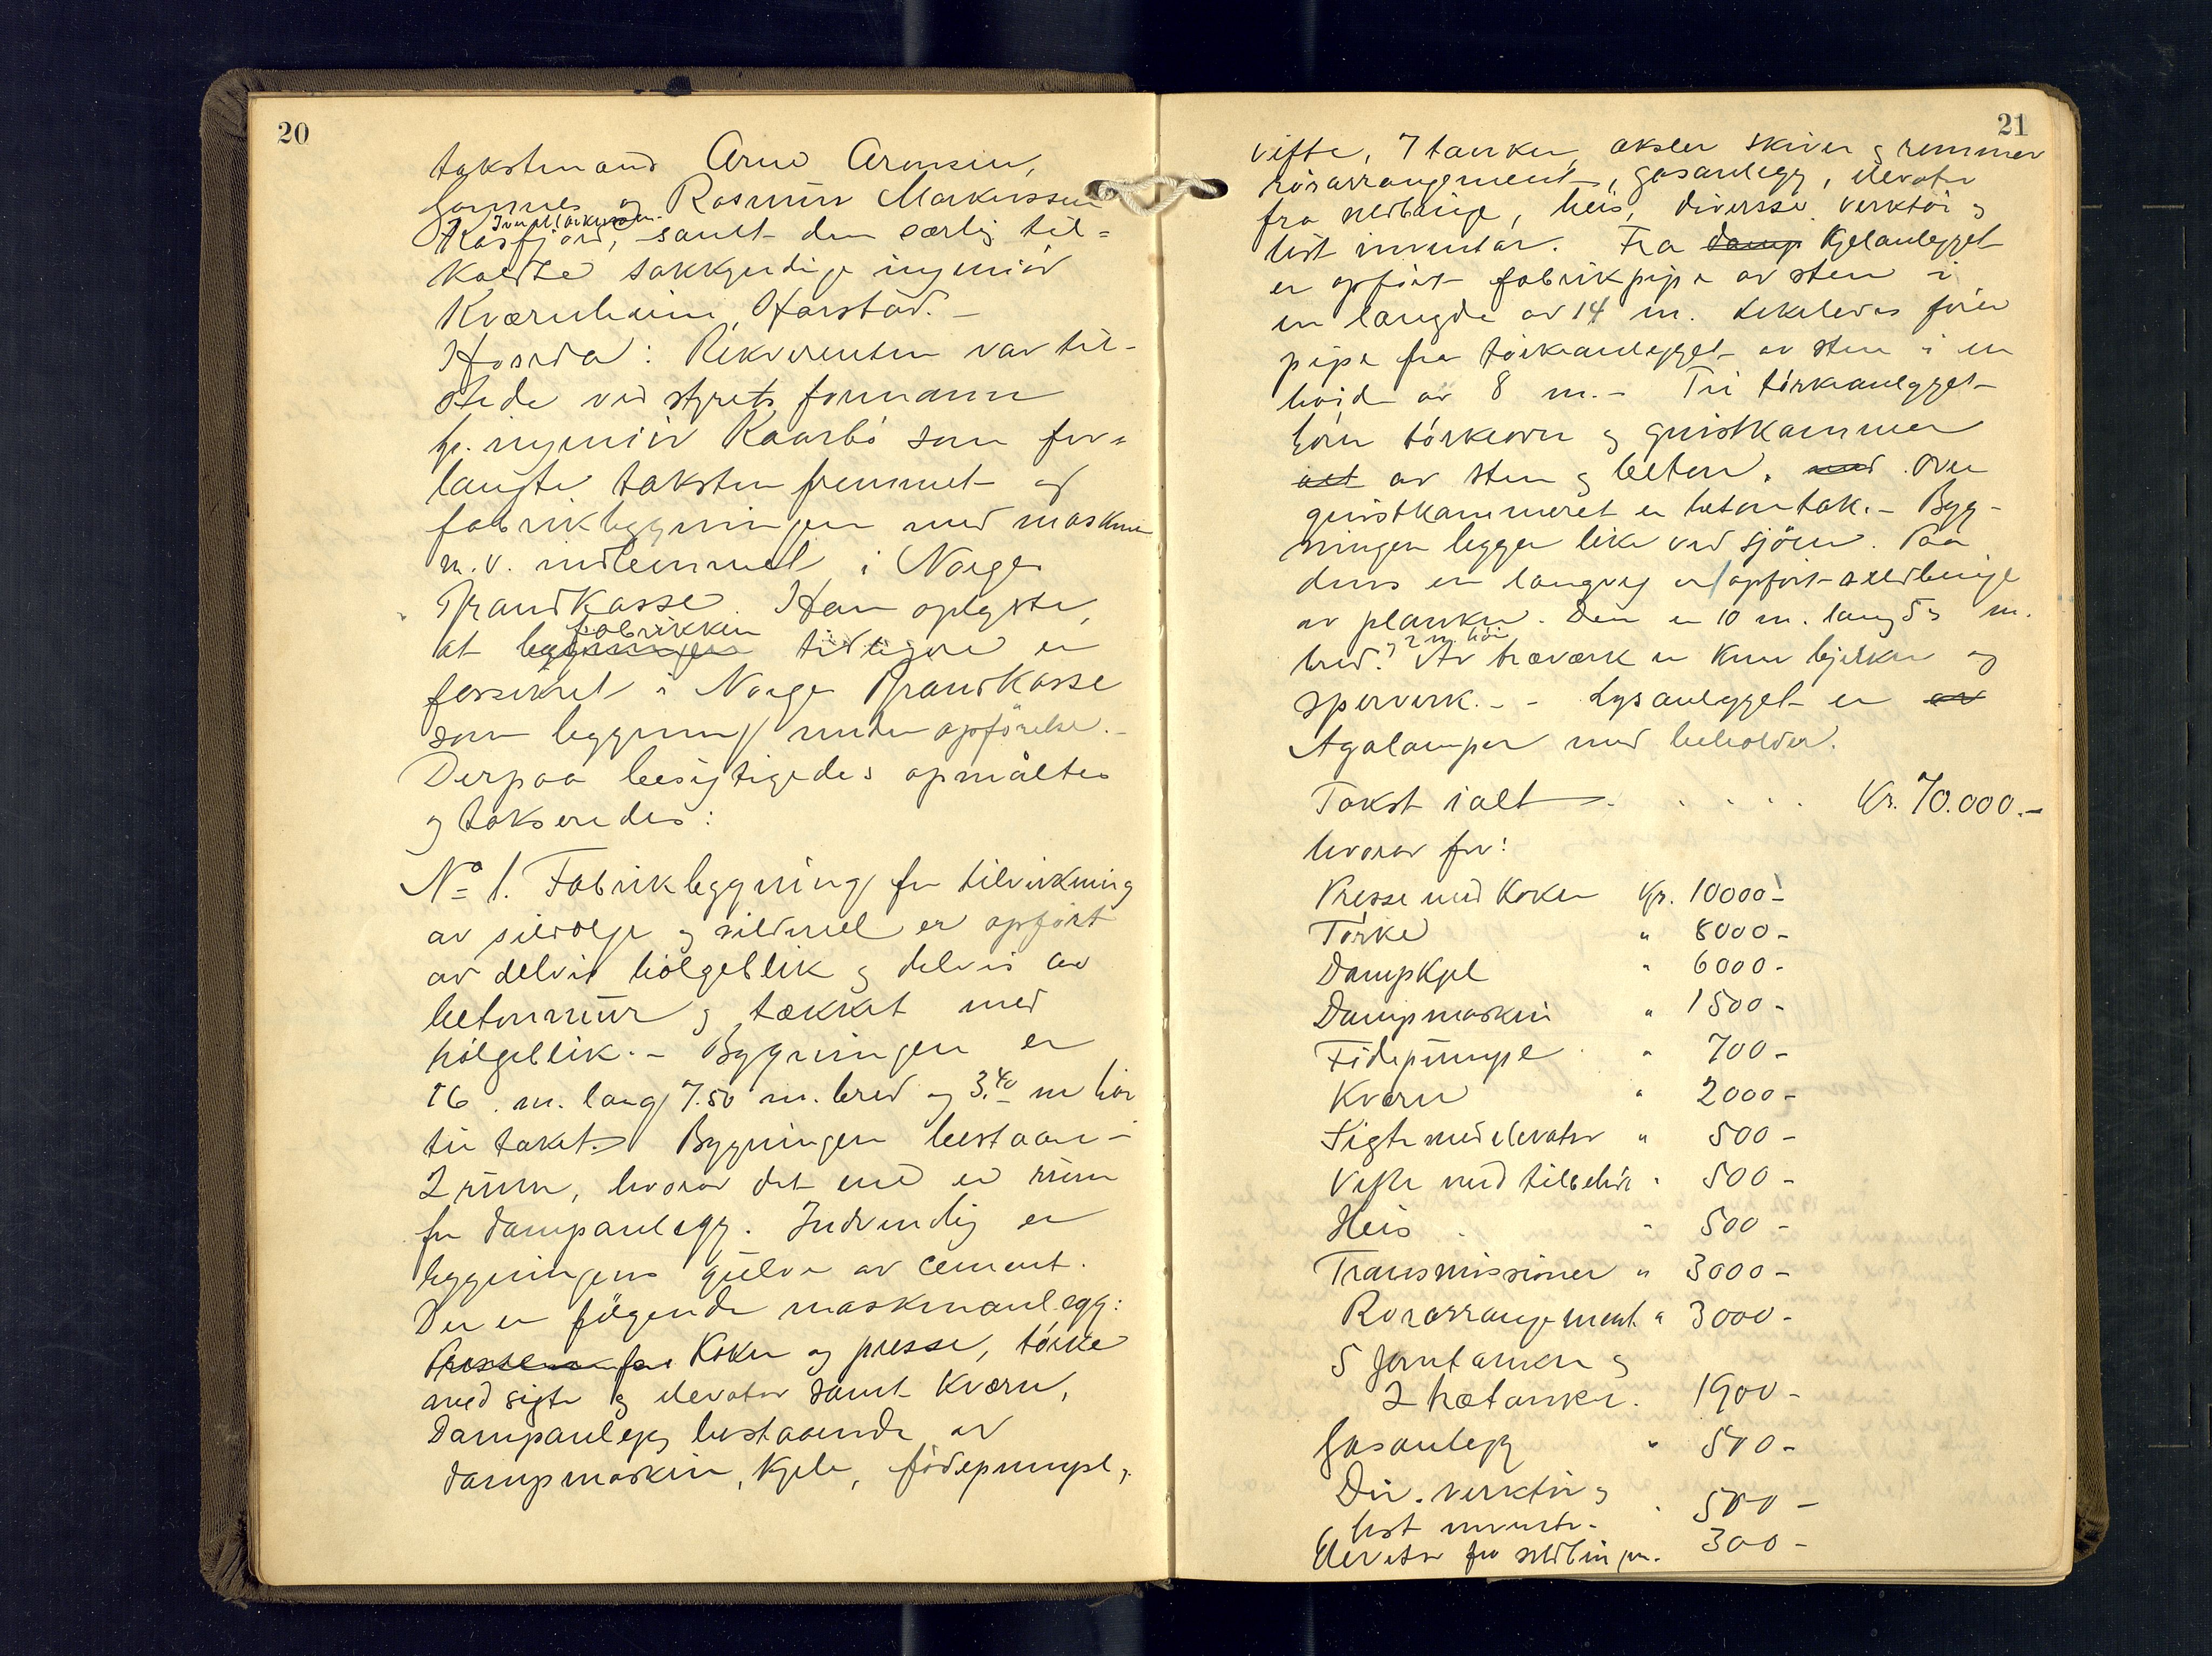 20
takstmand Arne Aronsen,
Gammes og Rasmus Markussen
Kasfjord, samt den særlig til=
kaldte sakkyndige ingeniør
Kværnheim, Harstad. –
Hvorda: Rekvirenten var til-
stede ved styrets formann
hr. ingeniør Kaarbö som for=
langte taksten fremmet og
fabrikbygningen med maskiner
m. v. indlemmet i Norges
Brandkasse. Han oplyste,
at bygningen fabrikken tidligere er
forsikret i Norges Brandkasse
som bygning under opförelse. –
Derpaa besigtigedes opmåltes
og takseredes:
No 1. Fabrikbygning for tilvirkning
av sildolje og sildmel er opfört
av delvis bölgeblik og delvis av
betonmur og tækket med
bölgeblik. – Bygningen er
16 m. lang 7.50 m. bred og 3.40 m höi
til taket. Bygningen bestaar i
2 rum, hvorav det ene er rum
for dampanlegg. Indvendig er
bygningens gulve av cement.
Der er fölgende maskinanlegg:
Presse for Koker og presse, törke
med sigte og elevator samt Kværn,
Dampanlegg bestaaende av
dampmaskin, Kjele, födepumpe,
21
vifte, 7 tanker, aksler skiver og remmer
rörarrangement, gasanlegg, elevator
fra sildbinge, heis, diverse verktöi og
löst inventar. Fra damp Kjelanlegget
er opfört fabrikpipe av sten i
en længde av 14 m. Likeledes förer
pipe fra törkeanlegget av sten i en
höide av 8 m. – Til törkeanlegget
hörer törkeovn og gnistkammer
alt av sten og beton, med over
gnistkammeret er betontak. – Byg-
ningen legger like ved sjöen. Paa
dens ene langveg er opfört sildbinge
av planker. Den er 10 m. lang 5 m.
bred og 2 m. höi. Av træværk er kun bjelker og
sperverk. – - Lysanlegget er av
Agalamper med beholder.
Takst ialt . . . . . Kr. 70.000.–
hvorav for:
Presse med Koker Kr. 10000 –
Törke " 8000 –
Dampkjel " 6000 –
Dampmaskin " 1500 –
Födepumpe " 700 –
Kværn " 2000 –
Sigte med elevator " 500 –
Vifte med tilbehör " 500 –
Heis " 500 –
Transmissioner " 3000 –
Rörarrangement " 3000 –
5 jerntanker og
2 trætanker. 1900 –
Gasanlegg " 500 –
Div. verktöi og
löst inventar " 500 –
Elevator fra sildbingen. 300 –